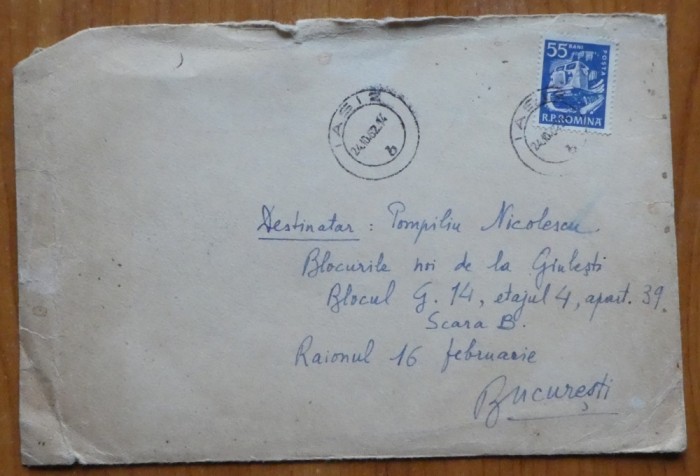 55 BANI
POSTA
R.P.ROMINA
IASI 2
24.10.62.14
b
IASI
24.10.62
b
Destinatar : Pompiliu Nicolescu.
Blocurile noi de la Giulești
Blocul G. 14, etajul 4, apart. 39.
Scara B.
Raionul 16 februarie
București